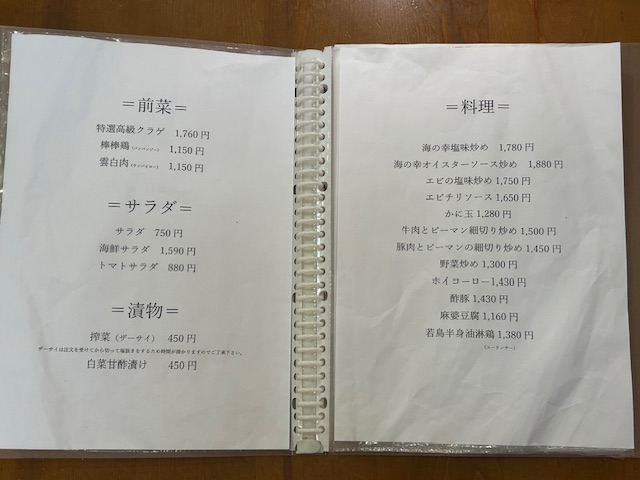 ＝前菜＝
特選高級クラゲ 1,760円
棒棒鶏(バンバンジー) 1,150円
雲白肉(ウンパイロー) 1,150円
＝サラダ＝
サラダ 750円
海鮮サラダ 1,590円
トマトサラダ 880円
＝漬物＝
搾菜（ザーサイ） 450円
ザーサイは注文を受けてから切って塩抜きをするため時間が掛かりますのでご了承下さい。
白菜甘酢漬け 450円
＝料理＝
海の幸塩味炒め 1,780円
海の幸オイスターソース炒め 1,880円
エビの塩味炒め1,750円
エビチリソース1,650円
かに玉1,280円
牛肉とピーマン細切り炒め1,500円
豚肉とピーマンの細切り炒め1,450円
野菜炒め1,300円
ホイコーロー1,430円
酢豚1,430円
麻婆豆腐1,160円
若鳥半身油淋鶏1,380円
(ユーリンチー)